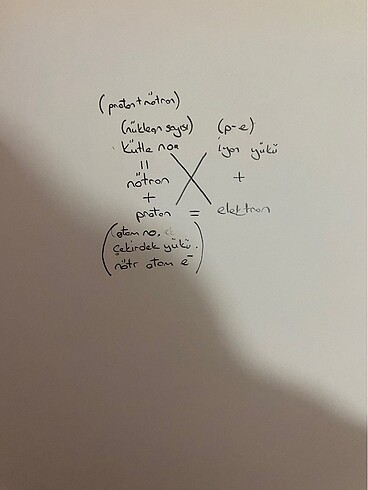 (proton + nötron)
(nükleon sayısı) (p-e)
Kütle noa iyon yükü
=
nötron +
+
proton = elektron
(atom no,
çekirdek yükü.
nötr atom e⁻)